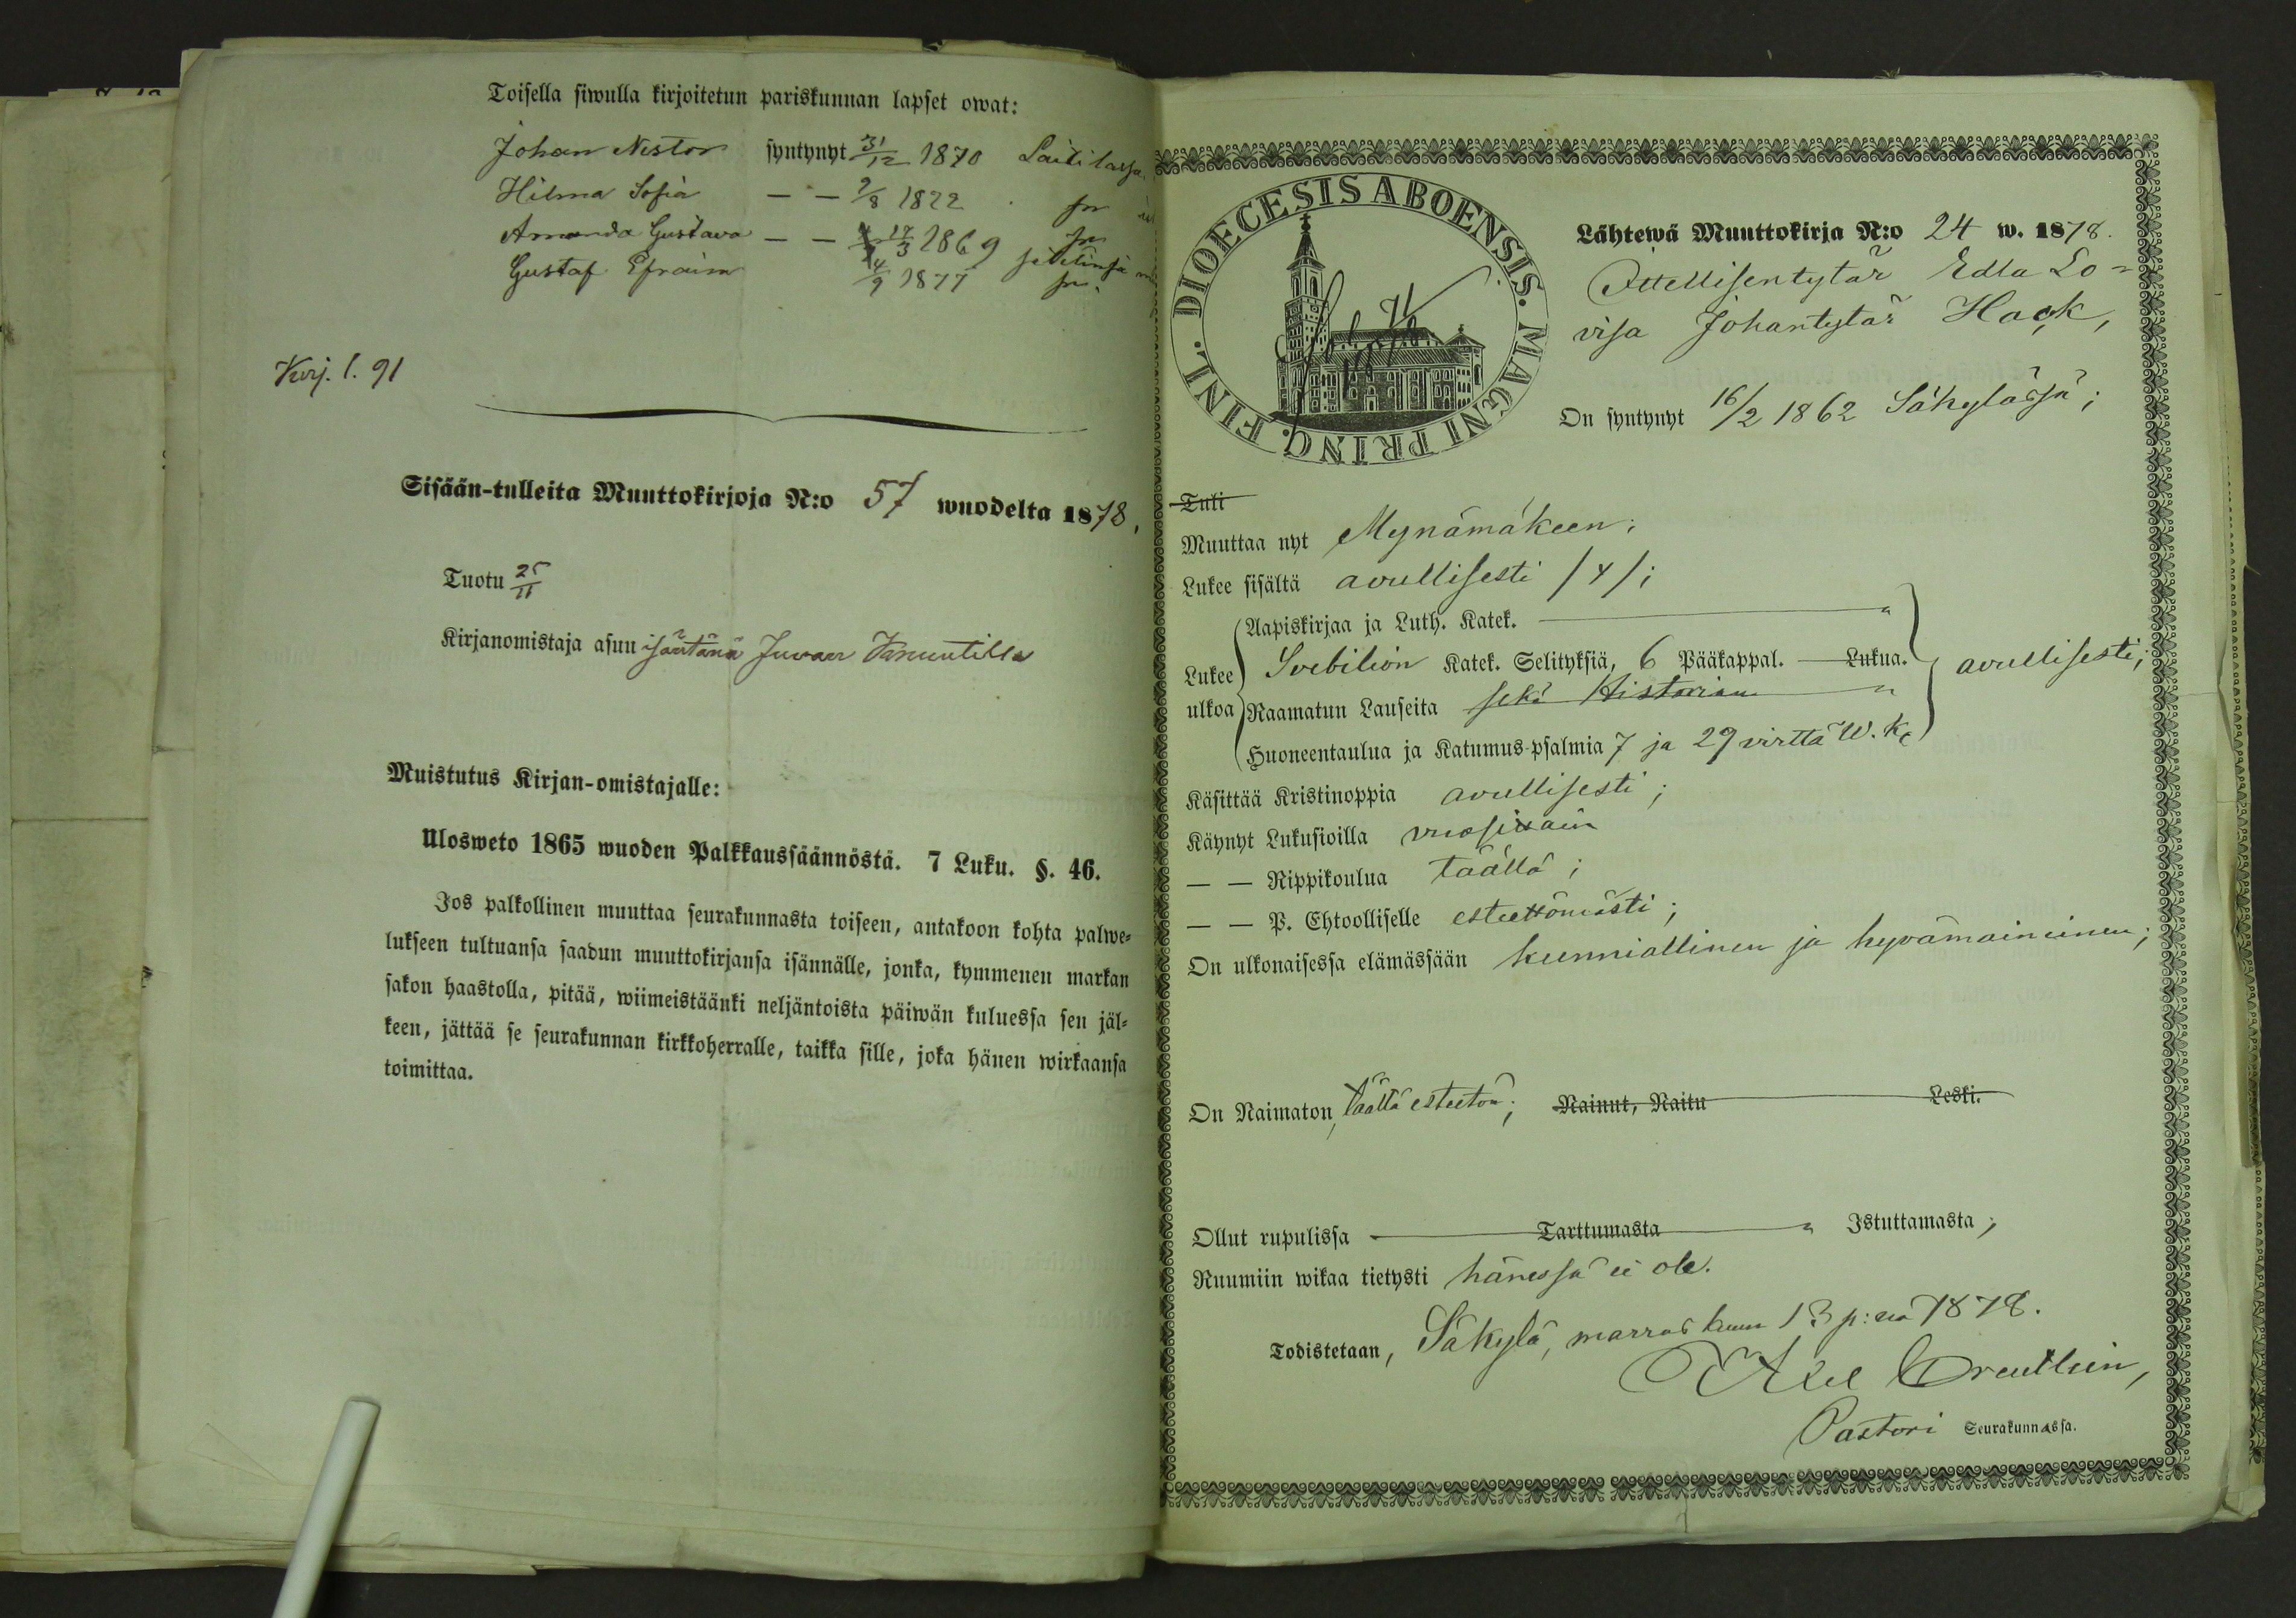 Toisella siwulla kirjoitetun pariskunnan lapset owat:
Johan Nestor syntynyt 31/12 1870 Laitilassa
Hilma Sofia — — 9/8 1872 sn
Amanda Gustava — — 17/3 1869 sn
Gustaf Efraim 4/9 1877 sn.
Kirj. l. 91
Sisään-tulleita Muuttokirjoja N:o 57 wuodelta 1878,
Tuotu 25/11
Kirjanomistaja asuu isäntänä Juvan
Muistutus Kirjan-omistajalle:
Ulosweto 1865 wuoden Palkkaussäännöstä. 7 Luku. §. 46.
Jos palkollinen muuttaa seurakunnasta toiseen, antakoon kohta palwe-
lukseen tultuansa saadun muuttokirjansa isännälle, jonka, kymmenen markan
sakon haastolla, pitää, wiimeistäänki neljäntoista päiwän kuluessa sen jäl-
keen, jättää se seurakunnan kirkkoherralle, taikka sille, joka hänen wirkaansa
toimittaa.
DIOECESIS ABOENSIS. MAGNI PRINC. FINL.
Lähtewä Muuttokirja N:o 24 w. 1878.
Ittellisentytär Edla Lo-
visa Johantytär Hack,
On syntynyt 16/2 1862 Säkylässä;
Tuli
Muuttaa nyt Mynämäkeen;
Lukee sisältä avullisesti /4/;
Aapiskirjaa ja Luth. Katek.
Lukee ulkoa Svebilion Katek. Selityksiä, 6 Pääkappal. Lukua. avullisesti;
Raamatun Lauseita sekä Historian
Huoneentaulua ja Katumus-psalmia 7 ja 29 virttä W. K.
Käsittää Kristinoppia avullisesti;
Käynyt Lukusioilla vuosittain
— — Rippikoulua täällä;
— — P. Ehtoolliselle esteettömästi;
On ulkonaisessa elämässään kunniallinen ja hyvämaineinen;
On Naimaton, täällä esteetön; Nainut, Naitu Leski.
Ollut rupulissa Tarttumasta Istuttamasta;
Ruumiin wikaa tietysti hänessä ei ole.
Todistetaan, Säkylä, marraskuun 13 p:nä 1878.
Axel
Pastori Seurakunnassa.